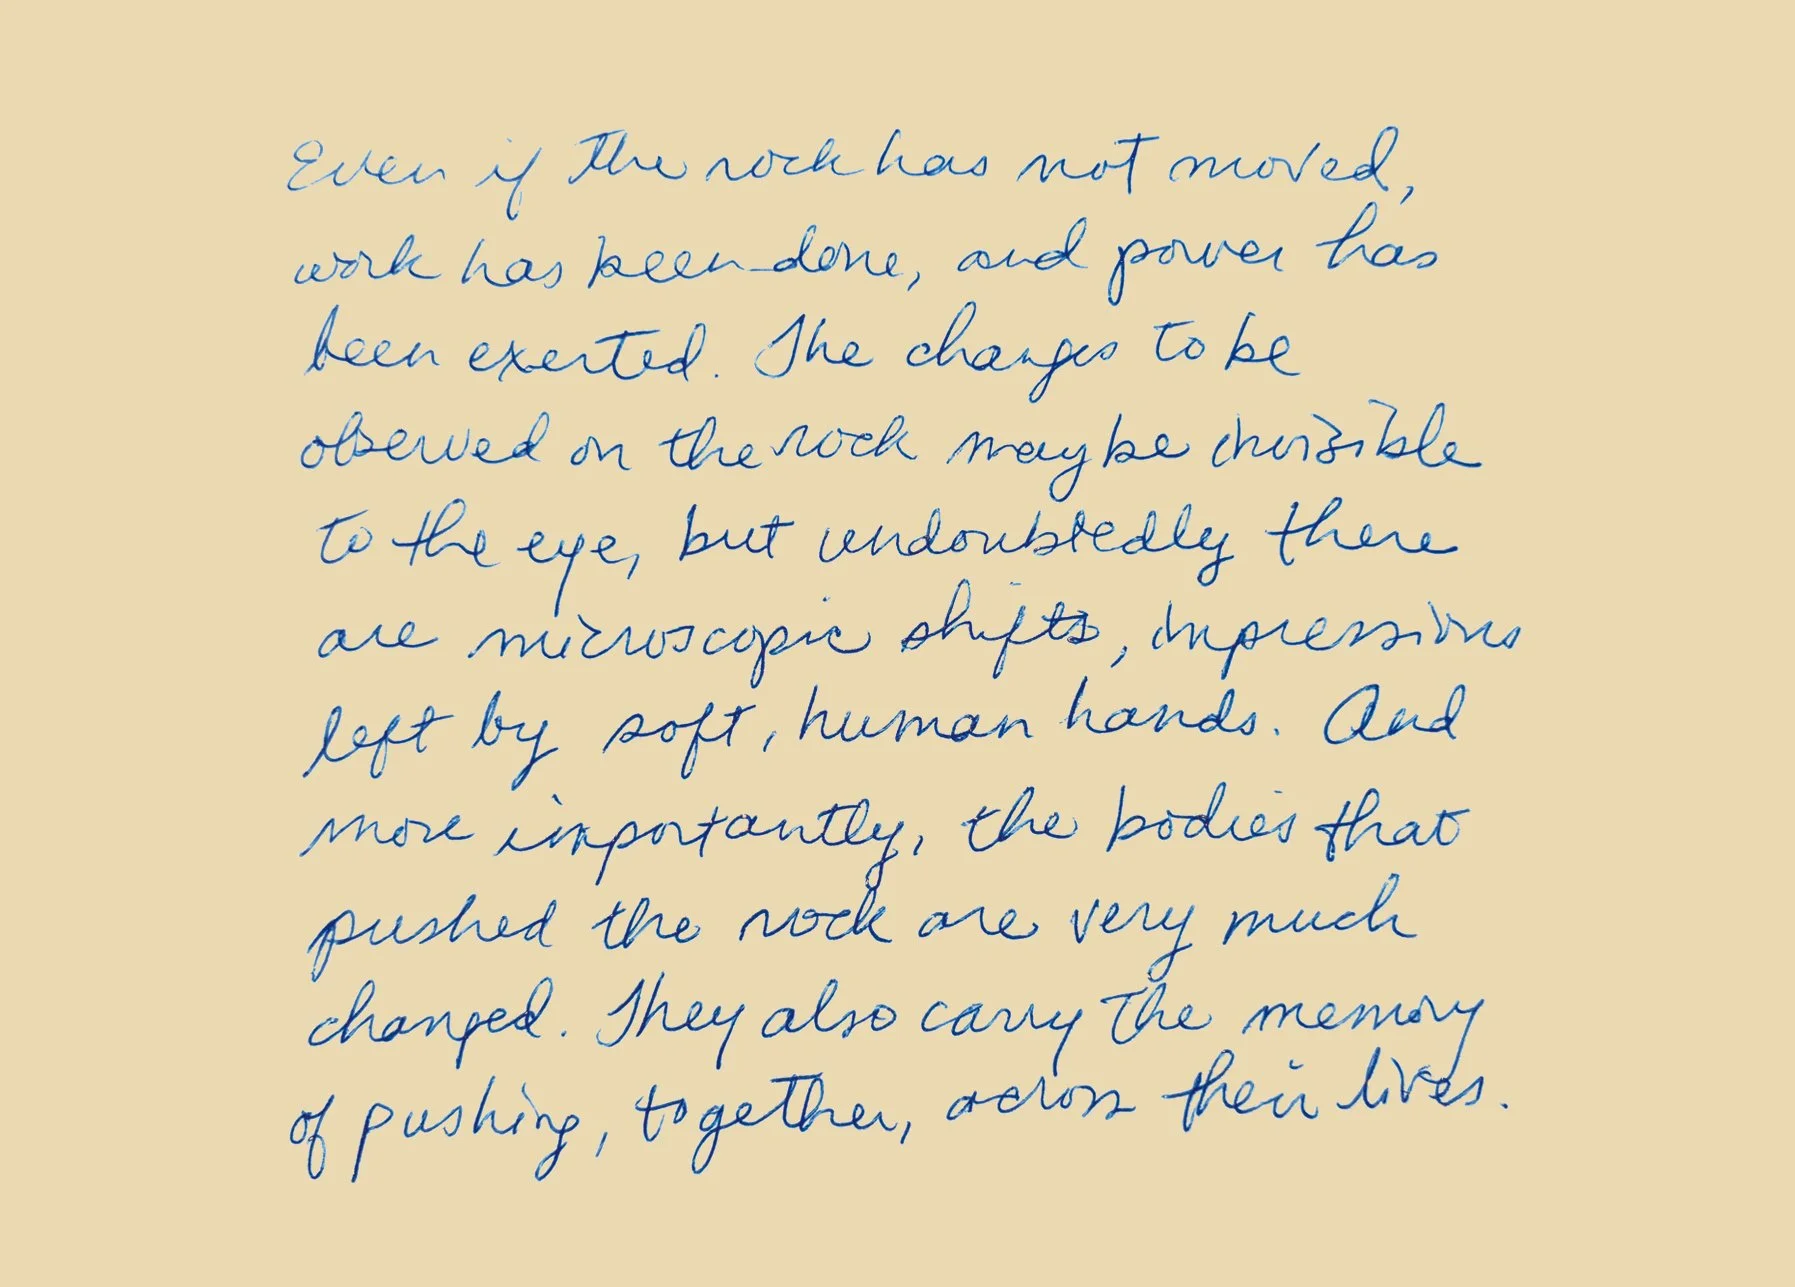 Even if the rock has not moved,
work has been done, and power has
been exerted. The changes to be
observed on the rock maybe invisible
to the eye, but undoubtedly there
are microscopic shifts, impressions
left by soft, human hands. And
more importantly, the bodies that
pushed the rock are very much
changed. They also carry the memory
of pushing, together, across their lives.